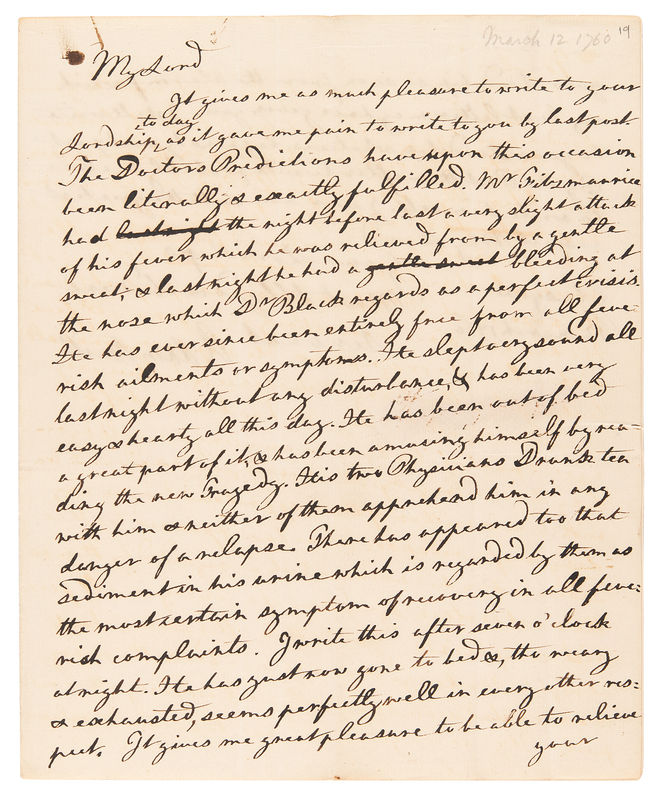 March 12 1760
19
My Lord
It gives me as much pleasure to write to your
to day
Lordship, as it gave me pain to write to you by last post
The Doctors Predictions have upon this occasion
been literally & exactly fulfilled. Mr Fitzmaurice
had last night the night before last a very slight attack
of his fever which he was relieved from by a gentle
sweat; & last night he had a gentle sweat bleeding at
the nose which Dr Black regards as a perfect crisis.
He has ever since been entirely free from all feve-
rish ailments or symptoms. He slept very sound all
last night without any disturbance, & has been very
easy & hearty all this day. He has been out of bed
a great part of it, & has been amusing himself by rea=
ding the new Tragedy. His two Physicians Drank tea
with him & neither of them apprehend him in any
danger of a relapse. There has appeared too that
sediment in his urine which is regarded by them as
the most certain symptom of recovery in all feve=
rish complaints. I write this after seven o'clock
at night. He has just now gone to bed &, tho weary
& exhausted, seems perfectly well in every other res=
pect. It gives me great pleasure to be able to relieve
your